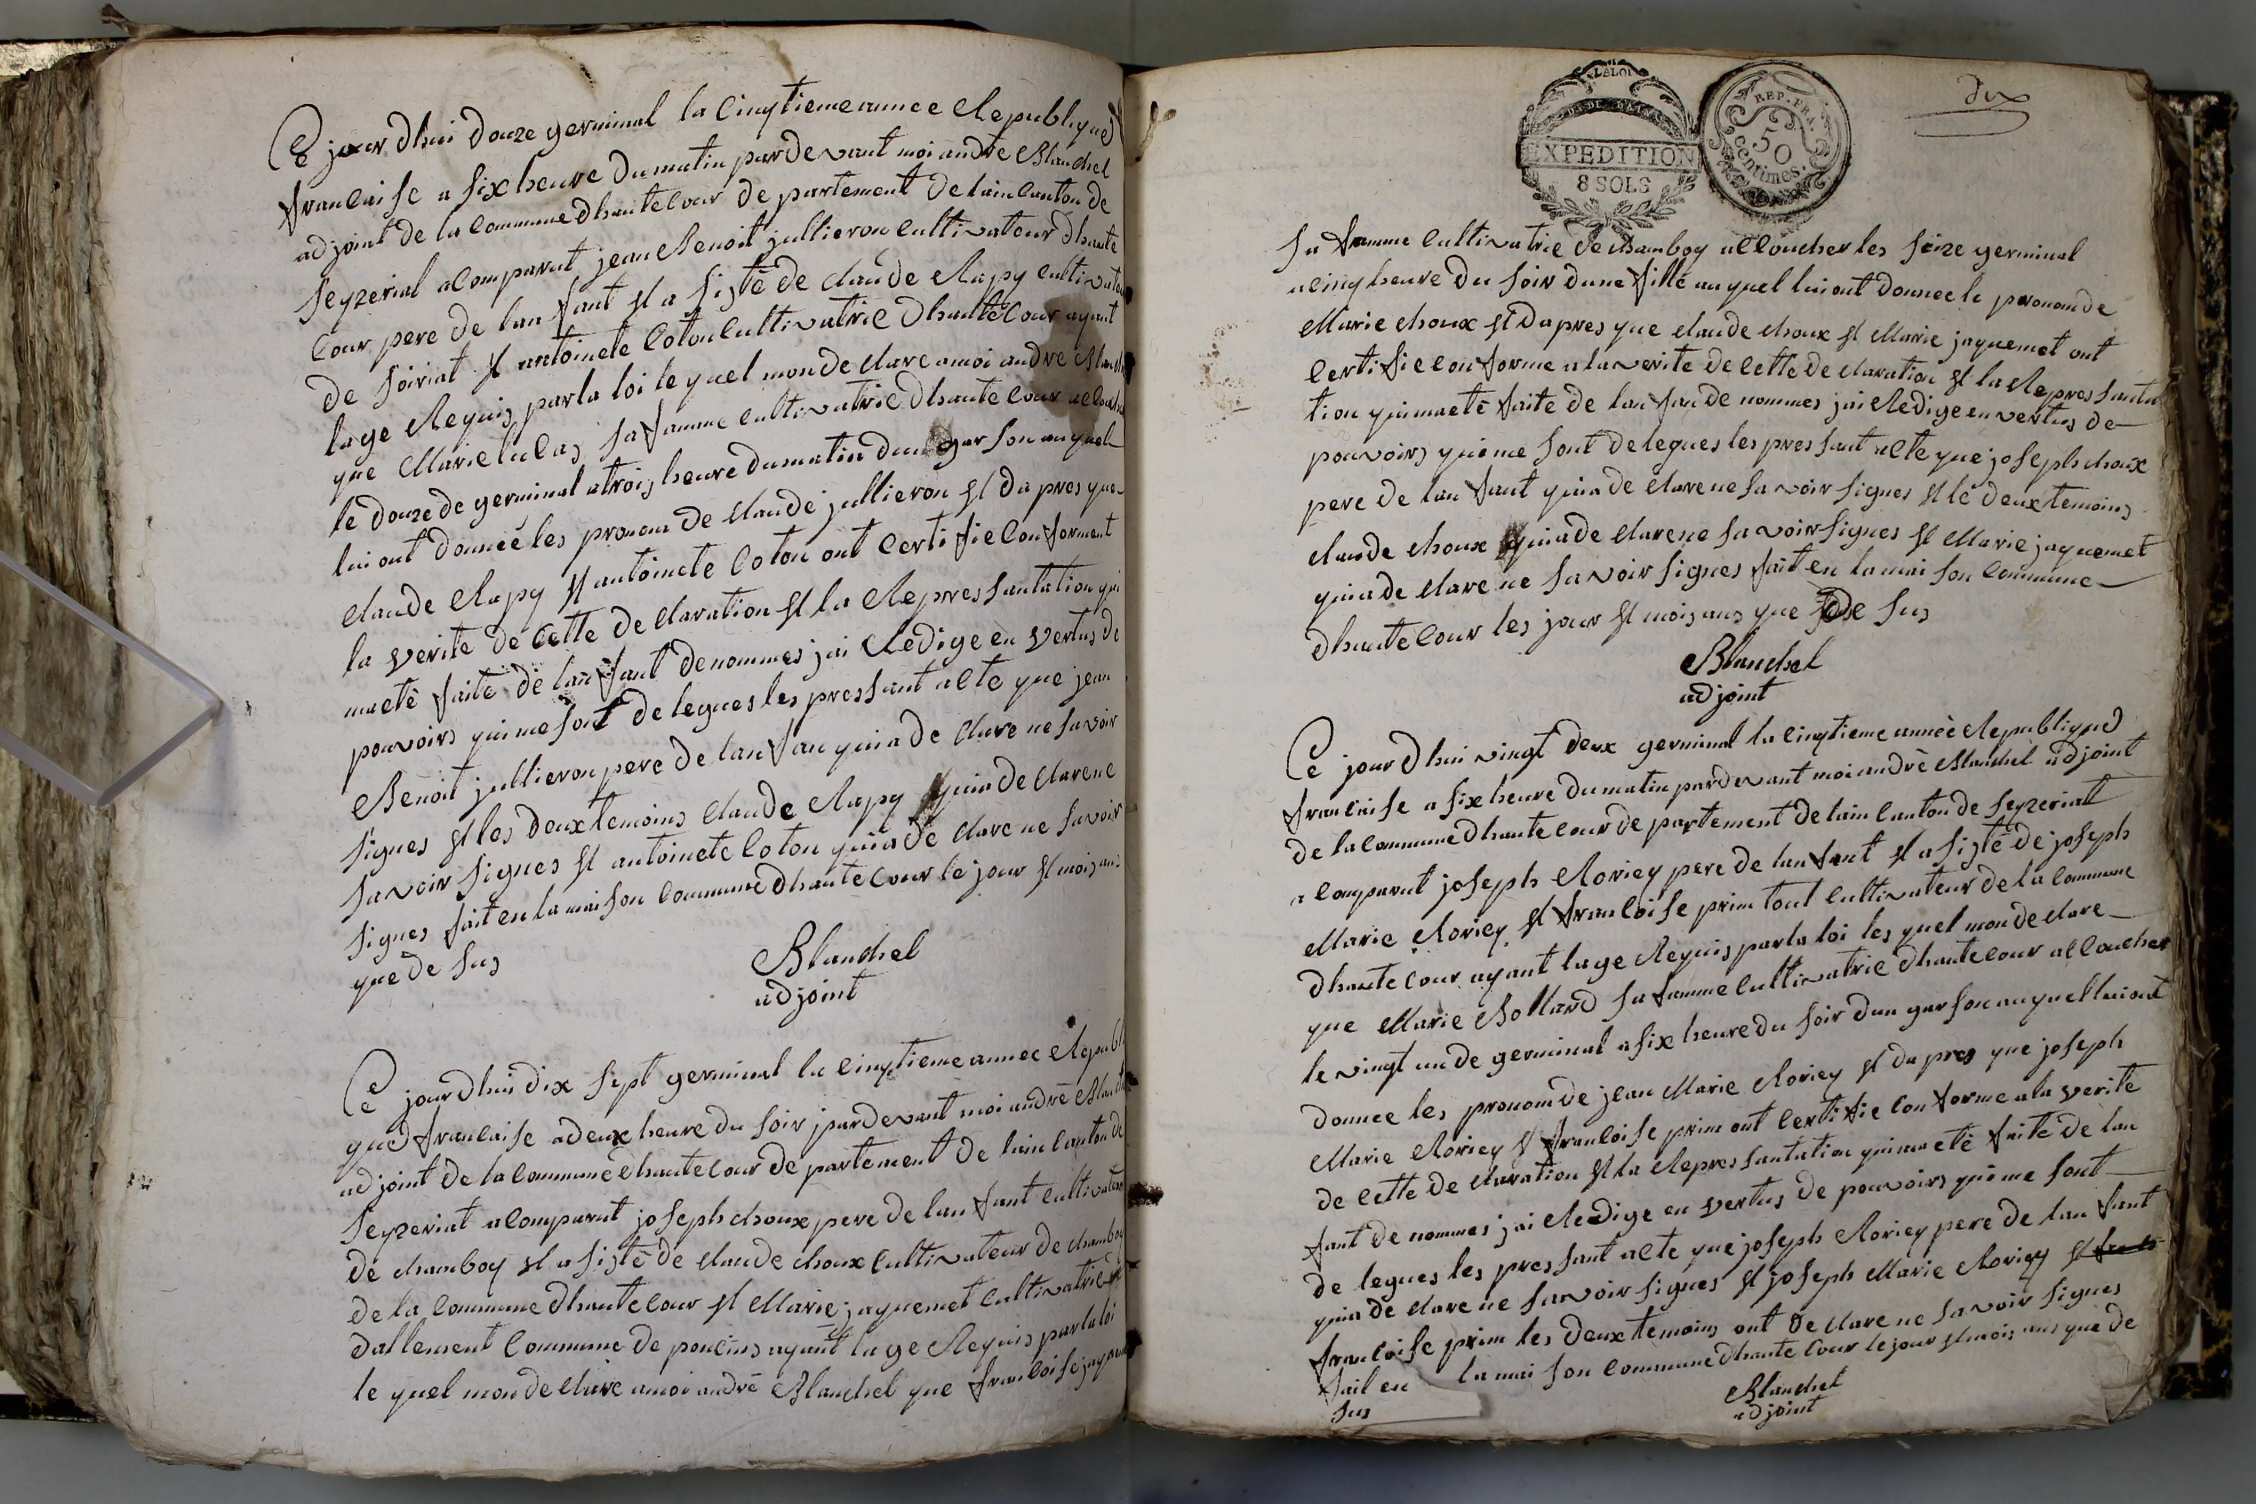 Ce jour dhui douze germinal la cinqtieme annee Republique
francaise a six heure du matin pardevant moi andre Blanchel
adjoint de la commune dhautecour departement de lain canton de
seyzeriat a comparut jean Benoit jullieron cultivateur dhaute
cour pere de lan fant et a sisté de claude Rapy cultivateur
de soiriat et antoinete coton cultivatrice dhautecour ayant
lage Requis par la loi lequel mon declare a moi andre
que Marie lucas sa famme cultivatrice dhautecour
le douze de germinal a trois heure du matin dun garson auquel
lui ont donneé les pronom de claude jullieron et dapres que
claude Rapy et antoinete coton ont certifie conforment
la verite de cette declaration et la Repressantation qui
maeté faite de lan fant denommes jai Redige en vertus de
pouvoirs qui me sont delegues les pressant acte que jean
Benoit jullieron pere de lan fan qui a declare ne savoir
signes et les deux temoins claude Rapy qui a declare ne
savoir signes et antoinete coton qui a declare ne savoir
signes fait en la maison commune dhautecour le jour et mois ans
que de sus
Blanchel
adjoint
Ce jour dhui dix sept germinal la cinqtieme annee Republi
que francaise a deux heure du soir pardevant moi andrè
adjoint de la commune dhautecour departement de lain canton de
seyzeriat a comparut joseph choux pere de lan fant cultivateur
de chamboy et a sisté de claude choux cultivateur de chamboy
de la commune dhautecour et Marie jaquemet cultivatrice
dallement commune de poncins ayant lage Requis par la loi
le quel mon declare a moi andrè Blanchel que francoise
LA LOI
EXPEDITION
8 SOLS
REP. FRA.
50
centimes.
dix
sa famme cultivatrice de chamboy accoucher les seize germinal
a cinq heure du soir dune fille auquel lui ont donnee le pronom de
Marie choux et dapres que claude choux et Marie jaquemet ont
certifie conforme a la verite de cette declaration et la Repressanta
tion qui maeté faite de lan fan denommes jai Redige en vertus de
pouvoirs qui me sont delegues les pressant acte que joseph choux
pere de lan fant qui a declare ne savoir signes et le deux temoins
claude choux qui a declare ne savoir signes et Marie jaquemet
qui a declare ne savoir signes fait en la maison commune
dhautecour les jour et mois ans que de sus
Blanchel
adjoint
Ce jour dhui vingt deux germinal la cinqtieme année Republique
francaise a six heure du matin pardevant moi andrè Blanchel adjoint
de la commune dhautecour departement de lain canton de seyzeriatt
a comparut joseph Roriey pere de lan fant et a sisté de joseph
Marie Roriey et francoise prim tout cultivateur de la commune
dhautecour ayant lage Requis par la loi les quel mon declare
que Marie Bollard sa famme cultivatrice dhautecour accoucher
le vingt un de germinal a six heure du soir dun garson auquel lui ont
donnee les pronom de jean Marie Roriey et dapres que joseph
Marie Roriey et francoise prim ont certifie conforme a la verité
de cette declaration et la Repressantation qui maeté faite de lan
fant denommes jai Redige en vertus de pouvoirs qui me sont
delegues les pressant acte que joseph Roriey pere de lan fant
qui a declare ne savoir signes et joseph Marie Roriey et
francoise prim les deux temoins ont declare ne savoir signes
fait en la maison commune dhautecour le jour et mois ans que de
sus
Blanchel
adjoint